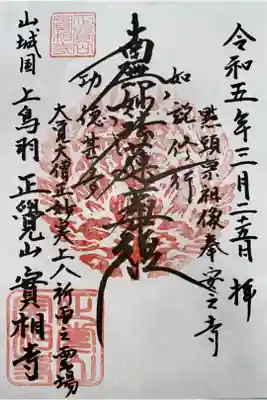 令和五年三月二五日 拝
點頭宗祖像奉安之寺
如説修行
南無妙法蓮華経
功徳甚多
大覚大僧正妙実上人祈雨之霊場
山城国 上鳥羽 正覺山 實相寺